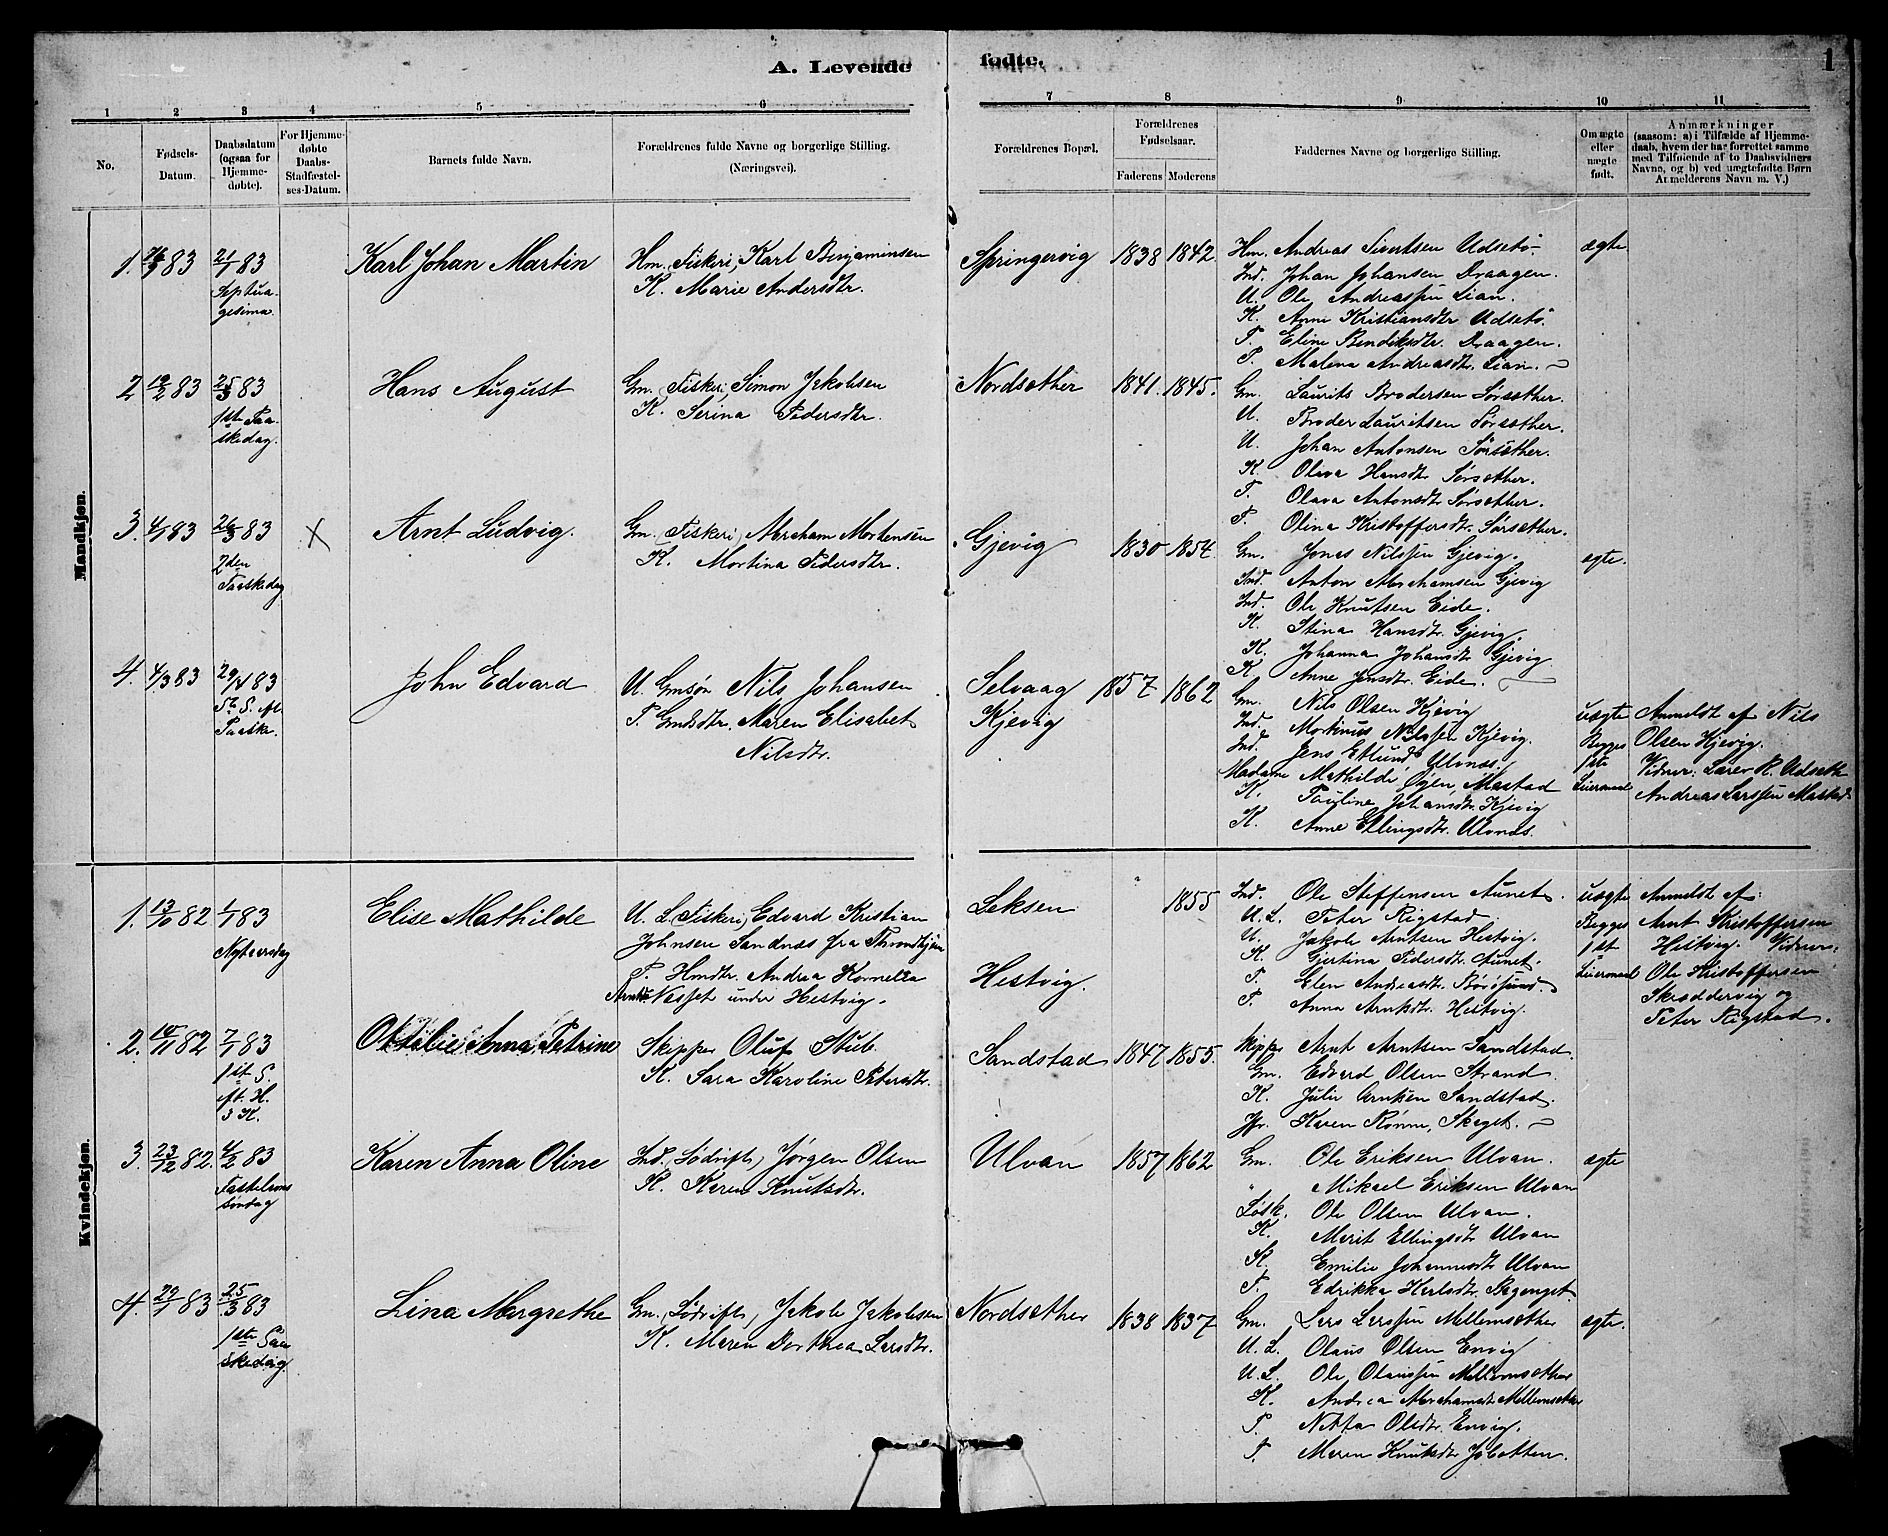 A. Levende fødte. 1
1 2 3 4 5 6 7 8 9 10 11
No.
Fødsels-
Datum.
Daabsdatum
(ogsaa for
Hjemme-
døbte).
For Hjemme-
døbte
Daabs-
Stadfæstel-
ses-Datum.
Barnets fulde Navn.
Forældrenes fulde Navne og borgerlige Stilling.
(Næringsvei).
Forældrenes Bopæl.
Forældrenes
Fødselsaar.
Faderens Moderens
Faddernes Navne og borgerlige Stilling.
Om ægte
eller
uægte
født.
Anmærkninger
(saasom: a) i Tilfælde af Hjemme-
daab, hvem der har forrettet samme
med Tilføiende af to Daabsvidners
Navne, og b) ved uægtefødte Børn
Anmelderens Navn m. V.)
Mandkjøn.
1. 83 21/1 83
Septua-
gesima.
Karl Johan Martin
Hm. (Fiskeri) Karl Benjaminsen
K. Marie Andersdtr.
Springervig 1838 1842.
Hm. Andreas Sivertsen Udsetö
Ind. Johan Johansen Draagen.
U. Ole Andreassen Lian.
K. Anne Kristiansdtr Udsetö.
P. Eline Bendiksdtr. Draagen.
P. Malena Andreasdtr. Lian.
ægte
2 12/2 83 25/3 83
1ste Paa-
skedag.
Hans August
Gm. (Fiskeri) Simon Jakobsen
K. Serina Pedersdtr.
Nordsæther 1841. 1845.
Gm. Laurits Brodersen Sørsæther.
U. Broder Lauritsen Sørsæther.
U. Johan Antonsen Sørsæther.
K. Olava Hansdtr Sørsæther.
P. Olava Antonsdtr Sørsæther.
P. Olina Kristoffersdtr. Sørsæther.
3. 4/1 83 26/3 83
2den
Paaskedag
X
Arnt Ludvig.
Gm. (Fiskeri) Abraham Mortensen
K. Mortina Pedersdtr.
Gjevig 1830 1854.
Gm. Jonas Nilssen Gjevig.
Ind. Anton Abrahamsen Gjevig
Ind. Ole Knutsen Eide.
K. Stina Hansdtr. Gjevig.
K. Johanna Johansdtr Gjevig
K. Anne Jensdtr. Eide.
ægte.
4. 4/3 83 29/4 83
5te S. eft.
Paaske.
John Edvard
U. Gmsøn Nils Johansen
P. Gmdsdtr. Maren Elisabet
Nilsdtr.
Selvaag
Kjevig
1857 1862
Gm. Nils Olsen Kjevig
Ind. Martinus Nilssen Kjevig.
Ind. Jens Edlund, Ulvnæs.
Madame Mathilde Øyen, Mastad
K. Pauline Johansdtr. Kjevig
K. Anne Ellingsdtr. Ulvnæs.
uægte
Begges
1ste
Leiermaal
Anmeldt af Nils
Olsen Kjevig.
Vidner: Lærer R. Udseth
Andreas Larssen Mastad
Kvindekjøn.
1. 13/10 82 1/1 83
Nytaarsdag
Elise Mathilde
U. L. (Fiskeri) Edvard Kristian
Johnsen Sandnæs fra Throndhjem
P. Hmdtr. Andrea Kornelia
Arntsdtr Næsset under Hestvig.
Leksen
Hestvig.
1855
Ind. Ole Steffensen Aunet.
U. L. Peter Rigstad.
U. Jakob Arntsen Hestvig.
K. Gjertina Pedersdtr. Aunet.
P. Elen Andreasdtr. Börösund.
P. Anna Arntsdtr. Hestvig.
uægte
Begges
1st
Leiermaal
Anmeldt af:
Arnt Kristoffersen
Hestvig. Vidner:
Ole Kristoffersen
Skreddervig og
Peter Rigstad.
2. 14/11 82 7/1 83
1st S.
eft. H.
3 K.
Oktalie Anna Petrine
Skipper Oluf Stub.
K. Sara Karoline Petersdtr.
Sandstad 1847 1855.
Skipper Arnt Arntsen Sandstad.
Gm. Edvard Olsen Strand
K. Julie Arntzen Sandstad.
Jfr. Karen Rönne, Skaget.
3. 23/12 82. 4/2 83
Fastelavns
søndag
Karen Anna Oline
Ind. (Lødrift) Jørgen Olsen
K. Karen Knutsdtr.
Ulvan 1857 1862
Gm. Ole Eriksen Ulvan.
" Mikael Eriksen Ulvan
Løsk. Ole Olsen Ulvan.
K. Merit Ellingsdtr Ulvan
K. Emilie Johannesdtr Ulvan
P. Edrikka Herlofsdtr.
ægte
4. 29/1 83 25/3 83
1ste Paa
skedag
Lina Margrethe
Gm. (Lødrift) Jakob Jakobsen
K. Maren Dorthea Larsdtr.
Nordsæther 1838 1837
Gm. Lars Larssen Mellemsæther
U. L. Olaus Olsen Envig
U. L. Ole Olaussen Mellemsæther
K. Andrea Abrahamsdtr Mellemsæther
P. Nikka Olsdtr. Envig.
P. Maren Knutsdtr Jøbotten.
ægte.